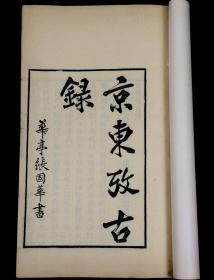 京東攷古
録
華亭張國華書